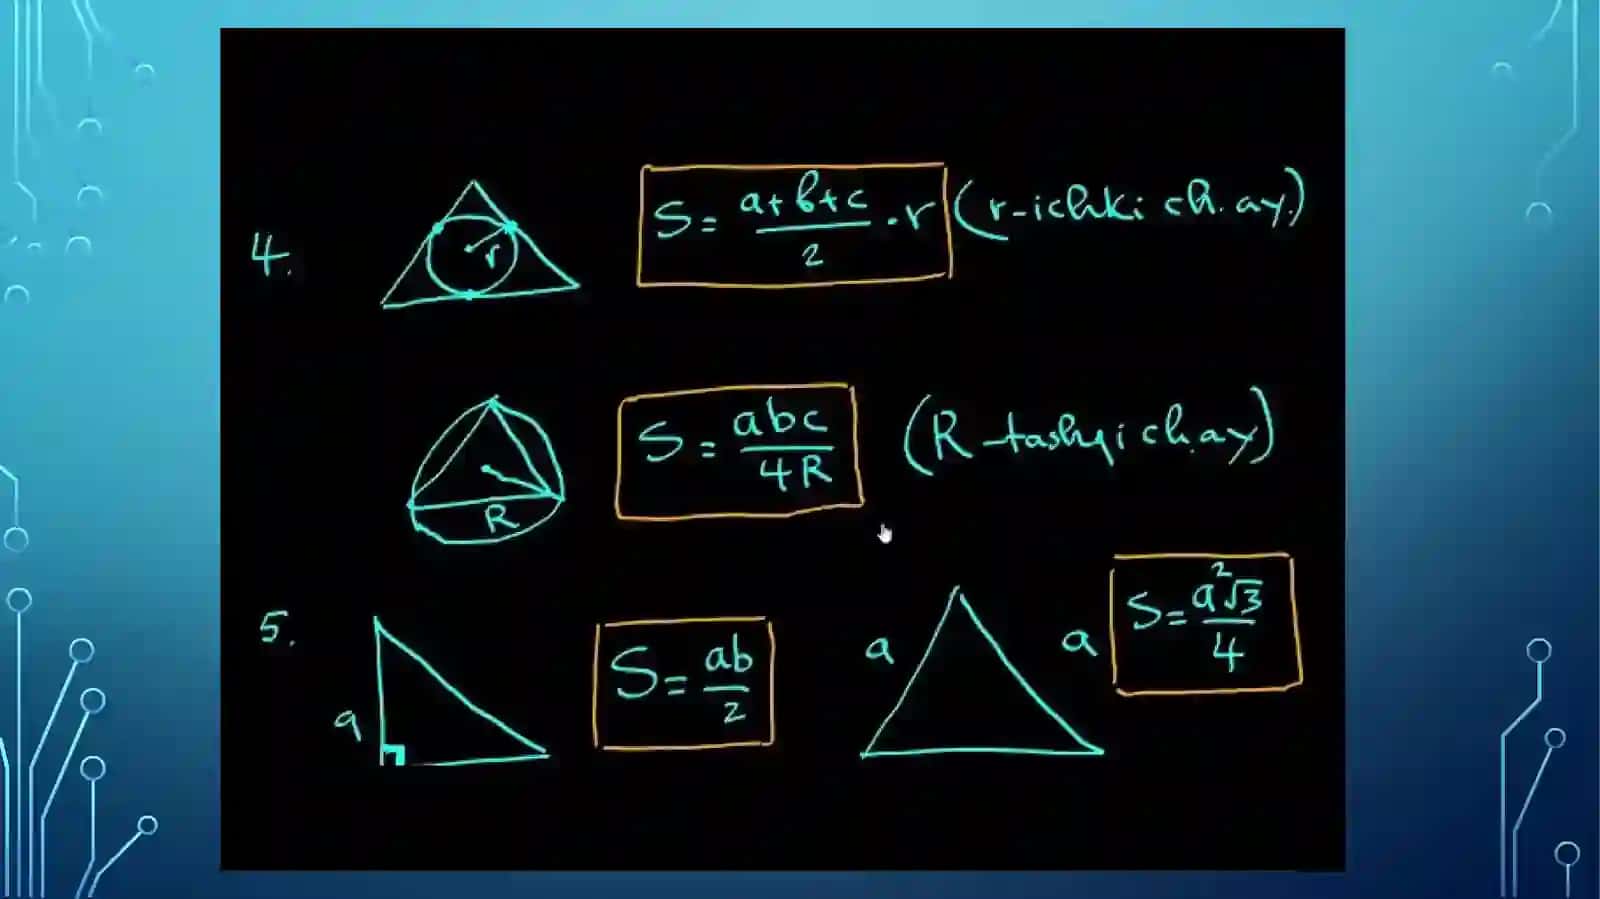 4.
r
S = a+b+c/2 · r (r-ichki ch.ay.)
R
S = abc/4R (R-tashqi ch.ay)
5.
a
S = ab/2
a
a
S = a²√3/4